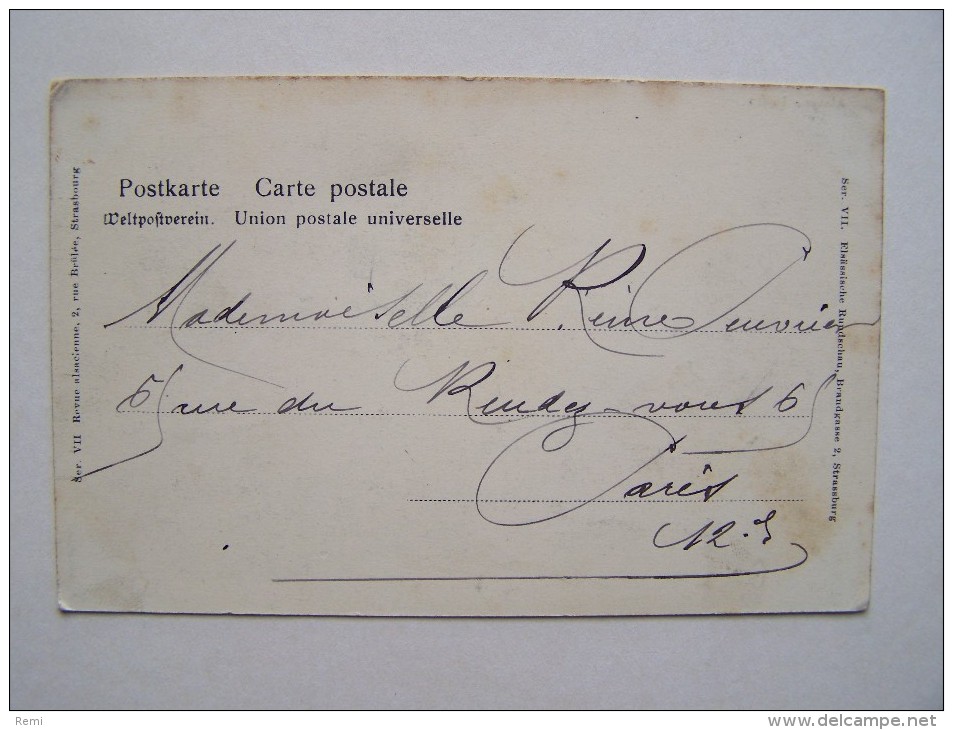 Postkarte Carte postale
Weltpostverein. Union postale universelle
Ser. VII Revue alsacienne, 2, rue Brûlée, Strasbourg
Ser. VII. Elsässische Rundschau, Brandgasse 2, Strassburg
Mademoiselle Reine
rue du Rendez-vous
Paris
12.
Remi
delcampe.net